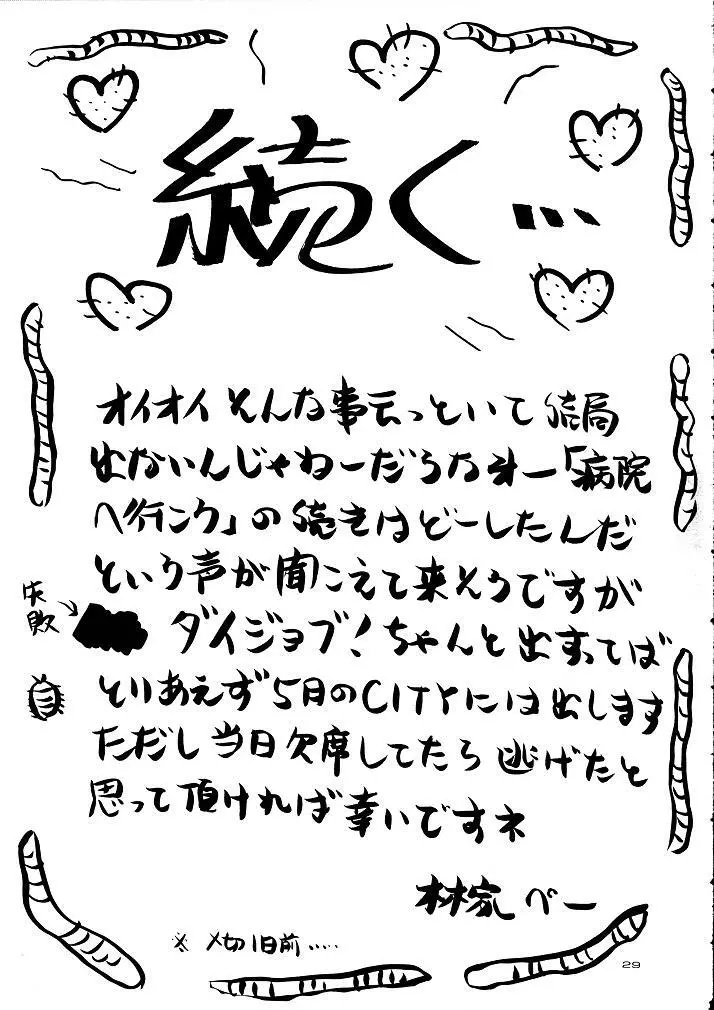 続く…
オイオイそんな事云っといて結局
出ないんじゃねーだろなオー「病院
へ行ンク」の続きはどーしたんだ
という声が聞こえて来そうですが
失敗
ダイジョブ！ちゃんと出すってば
とりあえず5月のCITYには出します
ただし当日欠席してたら逃げたと
思って頂ければ幸いですネ
林家ペー
※〆切1日前……
29